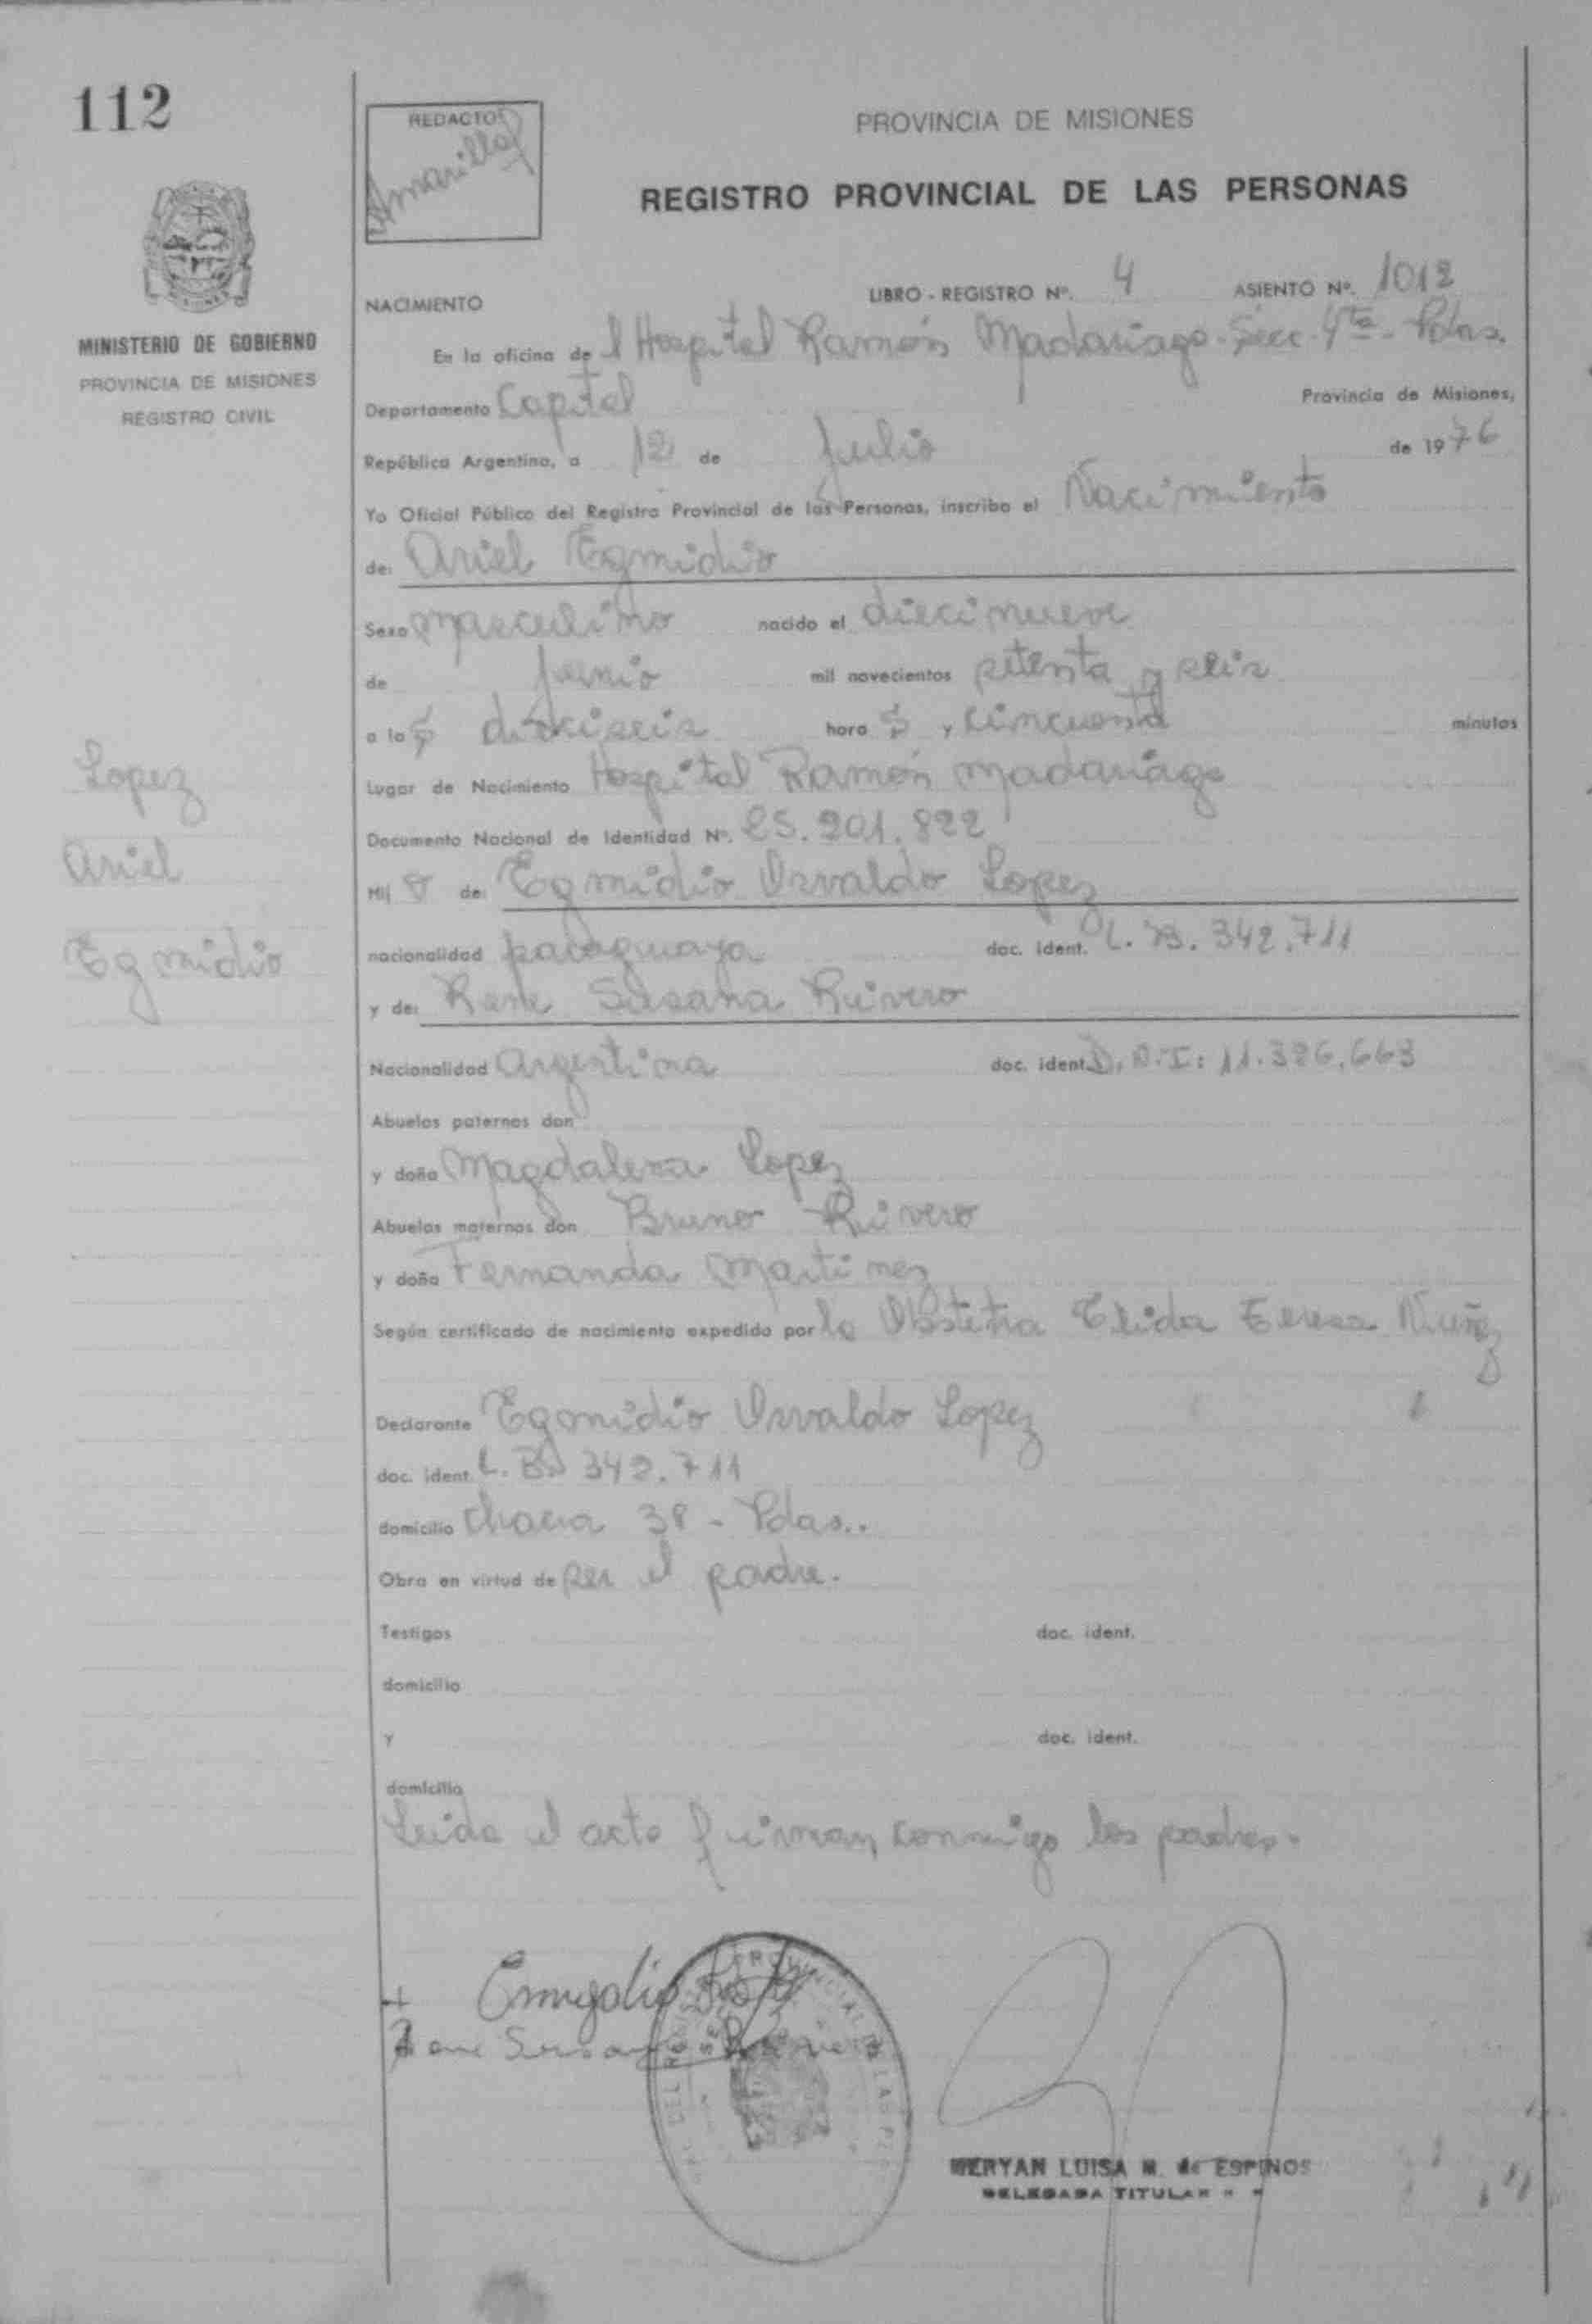 112
REDACTOR
Amarilla
PROVINCIA DE MISIONES
REGISTRO PROVINCIAL DE LAS PERSONAS
MINISTERIO DE GOBIERNO
PROVINCIA DE MISIONES
REGISTRO CIVIL
NACIMIENTO LIBRO - REGISTRO Nº. 4 ASIENTO Nº. 1012
En la oficina del Hospital Ramón Madariaga - Secc. 4ta - Pdas.
Departamento Capital Provincia de Misiones,
República Argentina, a 12 de Julio de 1976
Yo Oficial Público del Registro Provincial de las Personas, inscribo el Nacimiento
de: Ariel Egmidio
Sexo Masculino nacido el diecinueve
de junio mil novecientos setenta y seis
a las dieciseis hora s y cincuenta minutos
Lugar de Nacimiento Hospital Ramón Madariaga
Documento Nacional de Identidad Nº. 25.201.822
Lopez
Ariel
Egmidio
Hij o de: Egmidio Osvaldo Lopez
nacionalidad paraguaya doc. ident. C. B. 342.711
y de: Rene Susana Rivero
Nacionalidad Argentina doc. ident. D.N.I: 11.326.663
Abuelos paternos don
y doña Magdalena Lopez
Abuelos maternos don Bruno Rivero
y doña Fernanda Martinez
Según certificado de nacimiento expedido por la Obstetra Elida Teresa Nuñez
Declarante Egmidio Osvaldo Lopez
doc. ident. C. B. 342.711
domicilio Chacra 38 - Pdas..
Obra en virtud de ser el padre.
Testigos doc. ident.
domicilio
y doc. ident.
domicilio
Leida el acta firman conmigo los padres.
Rene Susana Rivero
MERYAN LUISA M. de ESPINOS
DELEGADA TITULAR